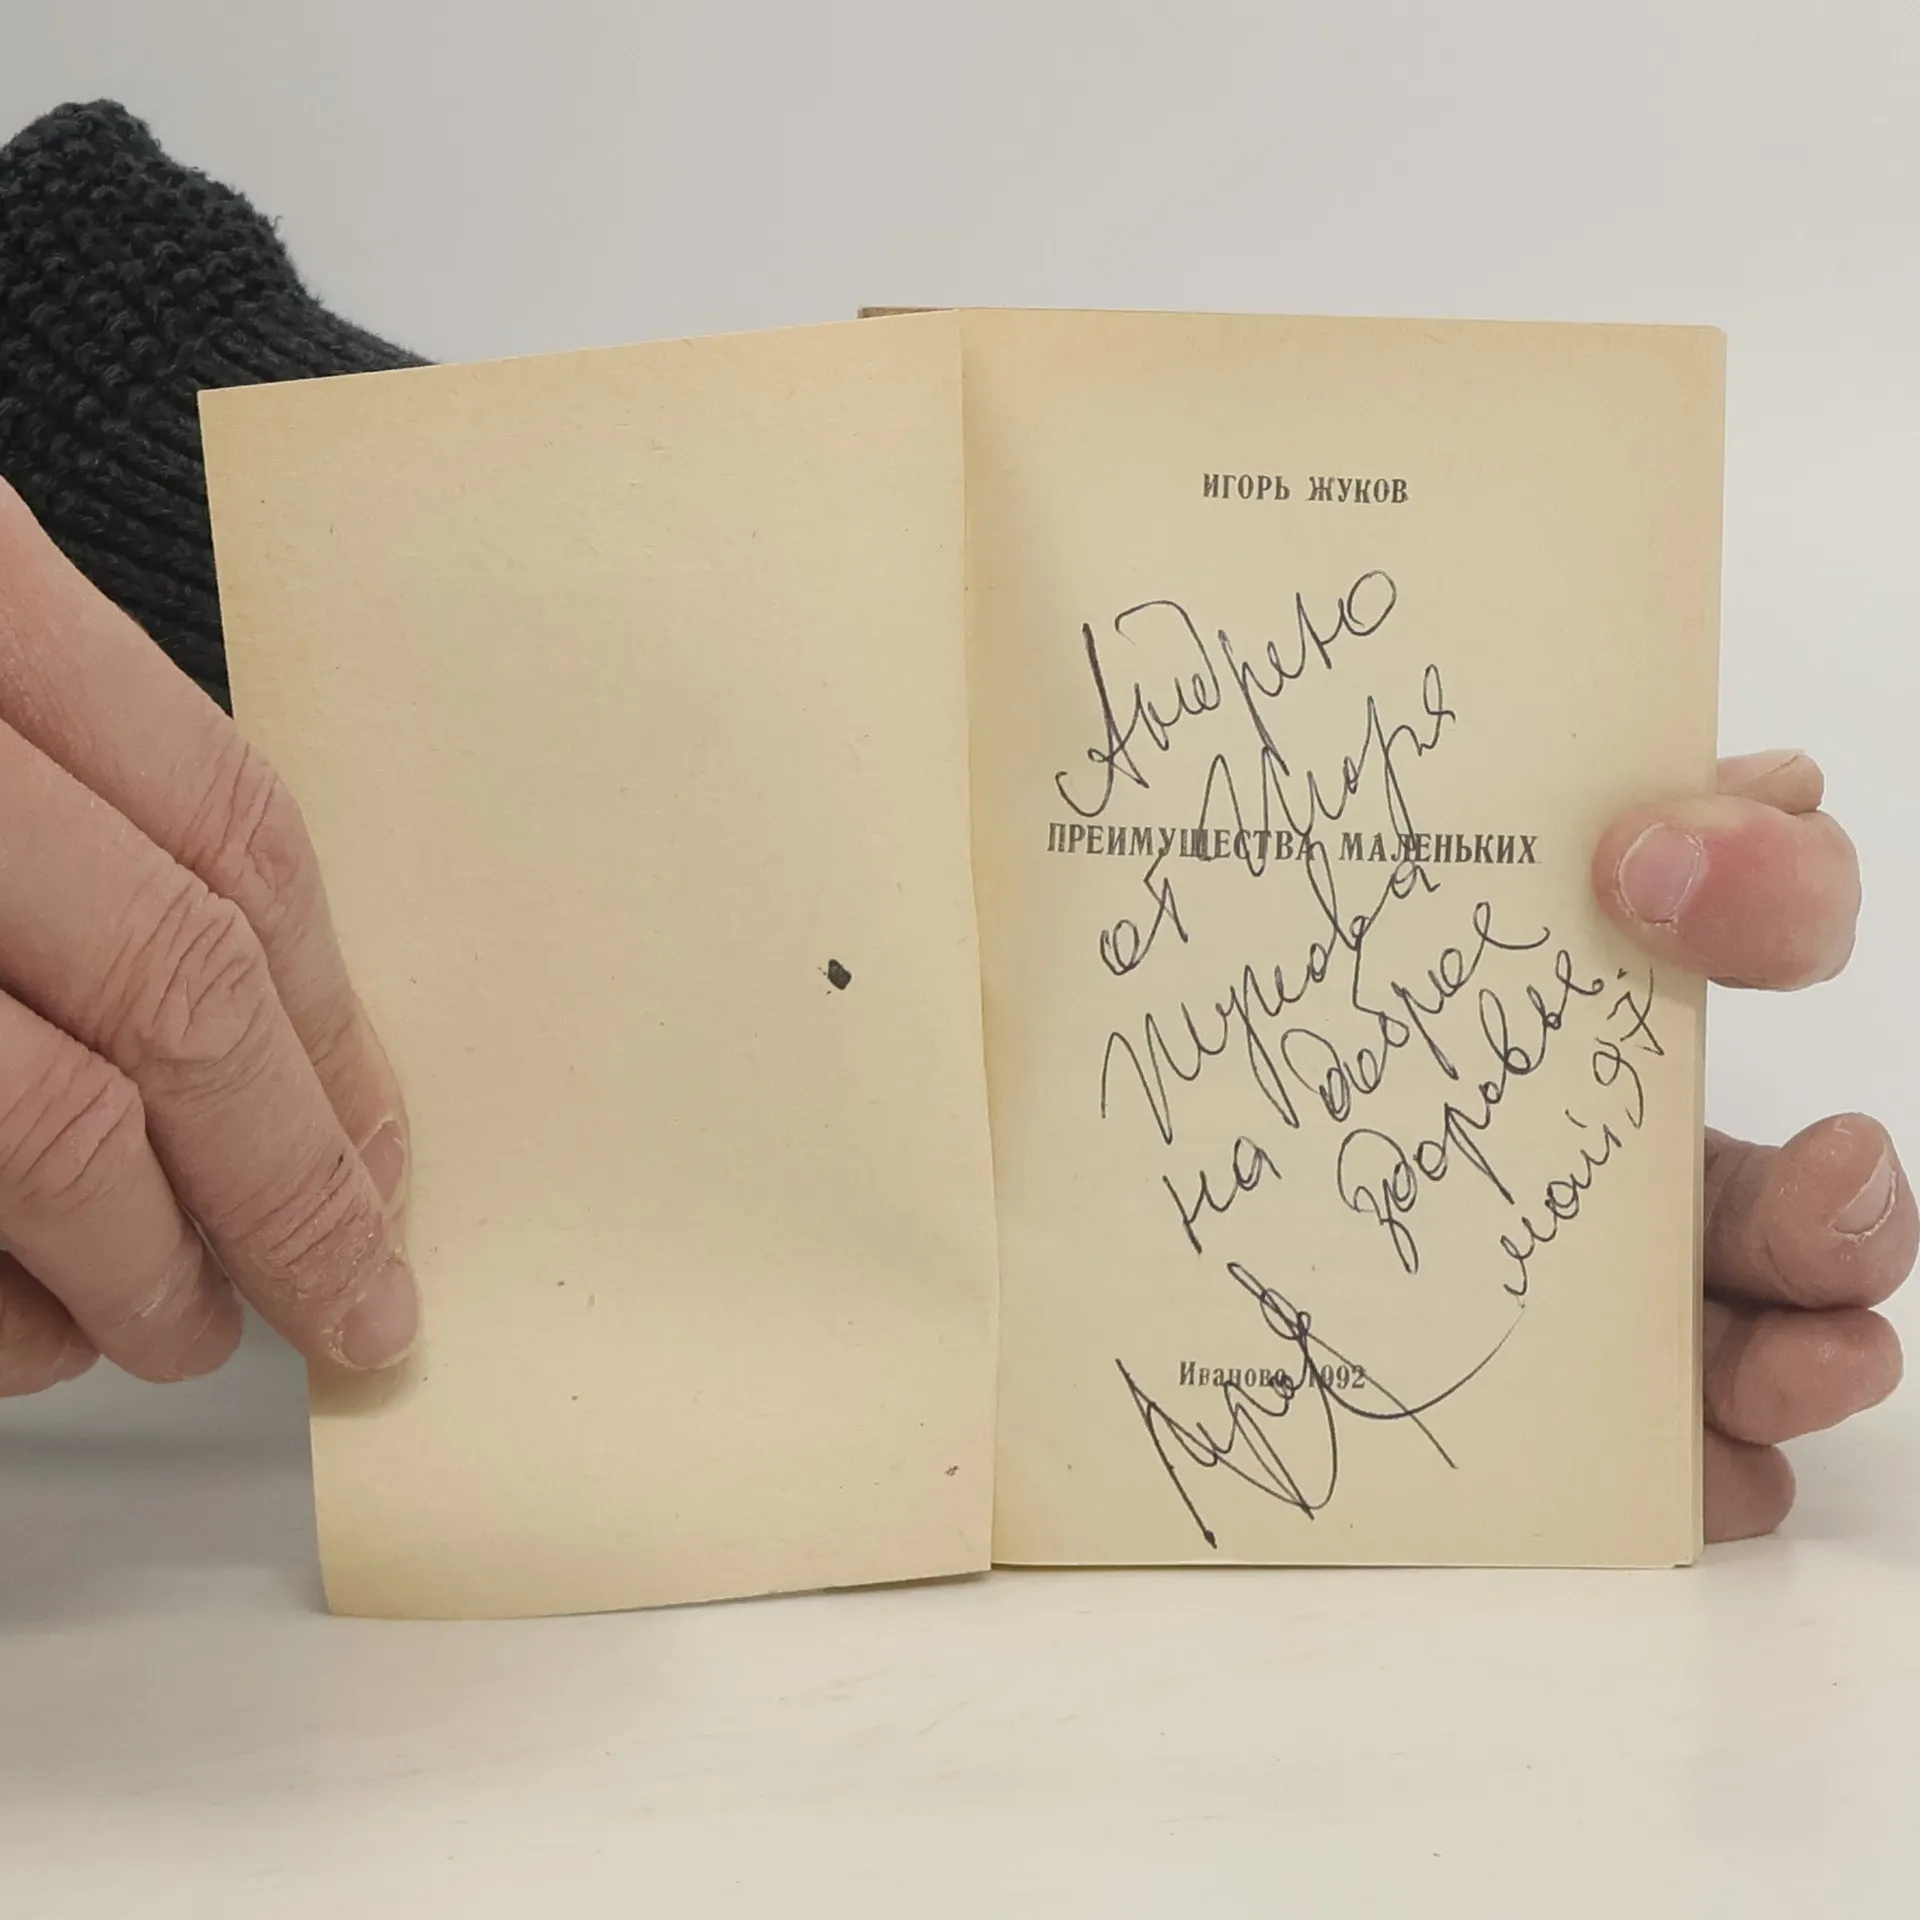 ИГОРЬ ЖУКОВ
Андрею
от Игоря
ПРЕИМУЩЕСТВА МАЛЕНЬКИХ
Жукова
на доброе
здоровье
май 97
Иваново 1992